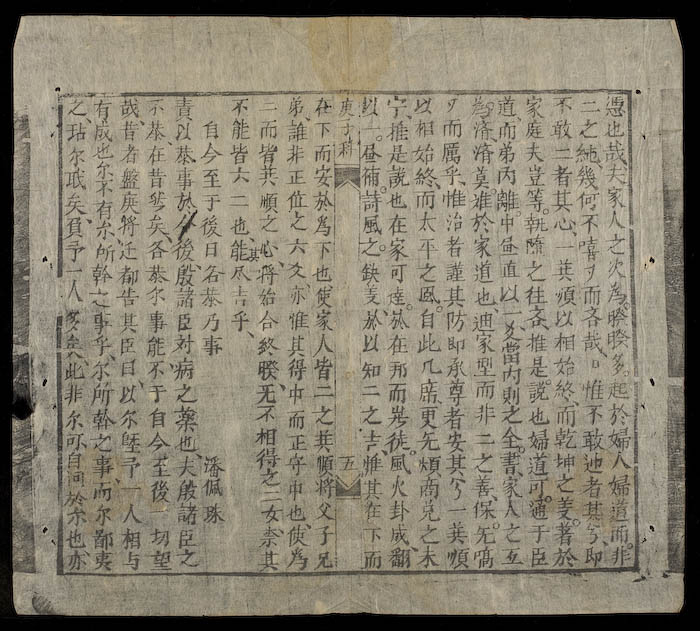 憑也哉夫家人之次為睽睽多起於婦人婦道而非
二之純幾何不嘻嘻而吝哉惟不敢逃者其分即
不敢二者其心一其順以相始終而乾坤之美著於
家庭夫豈等執隨之往吝推是說也婦道可通于臣
道而弟丙離中虛直以一爻當內則之全書家人之五
為濟濟莫難於家道也迪家型而非二之善保无嗃
嗃而厲乎惟治者謹其防即承尊者安其分一其順
以相始終而太平之風自此几席更无煩商兌之未
寧推是說也在家可達於在邦而必徙風火卦成翻
以一昼補詩風之缺姜於以知二之吉惟其在下而
庚子科
五
在下而安於為下也使家人皆二之其順將父子兄
弟誰非正位之六爻亦惟其得中而正守中也使為
二而皆其順之心將始合終睽无不相得之二女柰其
不能皆六二也能尽吉乎
自今至于後日各恭乃事
潘佩珠
責以恭事於今後殷諸臣対病之藥也夫殷諸臣之
不恭在昔多矣各恭尔事能不于自今至後一切望
哉昔者盤庚将迁都告其臣曰以尔堕予一人相与
有成也尔不有尔所幹之事乎尔所幹之事而尔鄙夷
之玷尔職矣負予一人多矣此非尔可自問於尔也亦